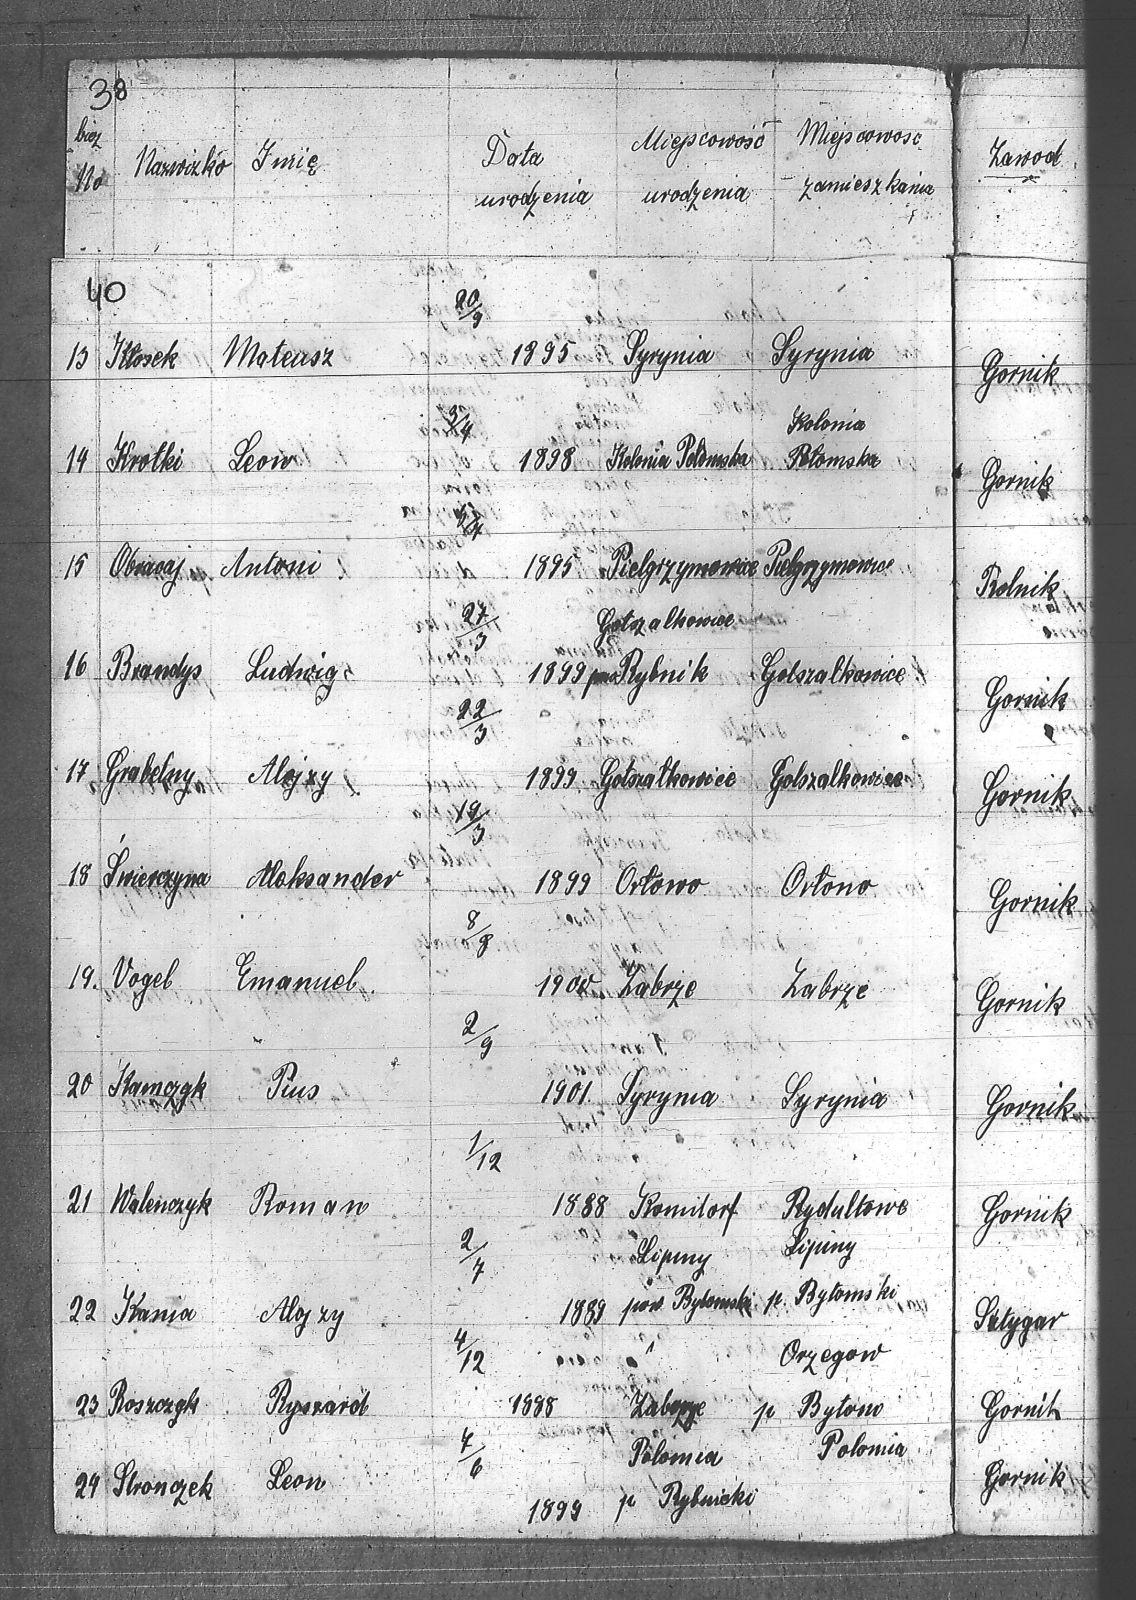 38
bież No Nazwizko Imię Data urodzenia Miejscowość urodzenia Miejscowość zamieszkania Zawod
40
20/9
13 Kłosek Mateusz 1895 Syrynia Syrynia Gornik
3/4 Kolonia
14 Krotki Leon 1898 Kolonia Połomska Połomska Gornik
15 Antoni 1895 Pielgrzymowice Pielgrzymowice Rolnik
27/3 Gołszalkowice
16 Brandys Ludwig 1899 pow Rybnik Golszalkowice Gornik
22/3
17 Grabelny Alojzy 1899 Gołszałkowice Golszalkowice Gornik
19/3
18 Świerczyna Aleksander 1899 Orłowo Orłono Gornik
8/8
19. Vogel Emanuel 1900 Zabrze Zabrze Gornik
2/9
20 Kamczyk Pius 1901. Syrynia Syrynia Gornik
1/12
21 Walenczyk Roman 1888 Komitorf Rydultowe Gornik
2/7 Lipiny Lipiny
22 Kania Alojzy 1889 pow. Bytomski p. Bytomski Sztygar
4/12 Orzegow
23 Roszczyk Ryszard 1888 Zabrze p Bytom Gornik
7/6 Połomia Polomia
24 Stronczek Leon 1899 p Rybnicki Gornik